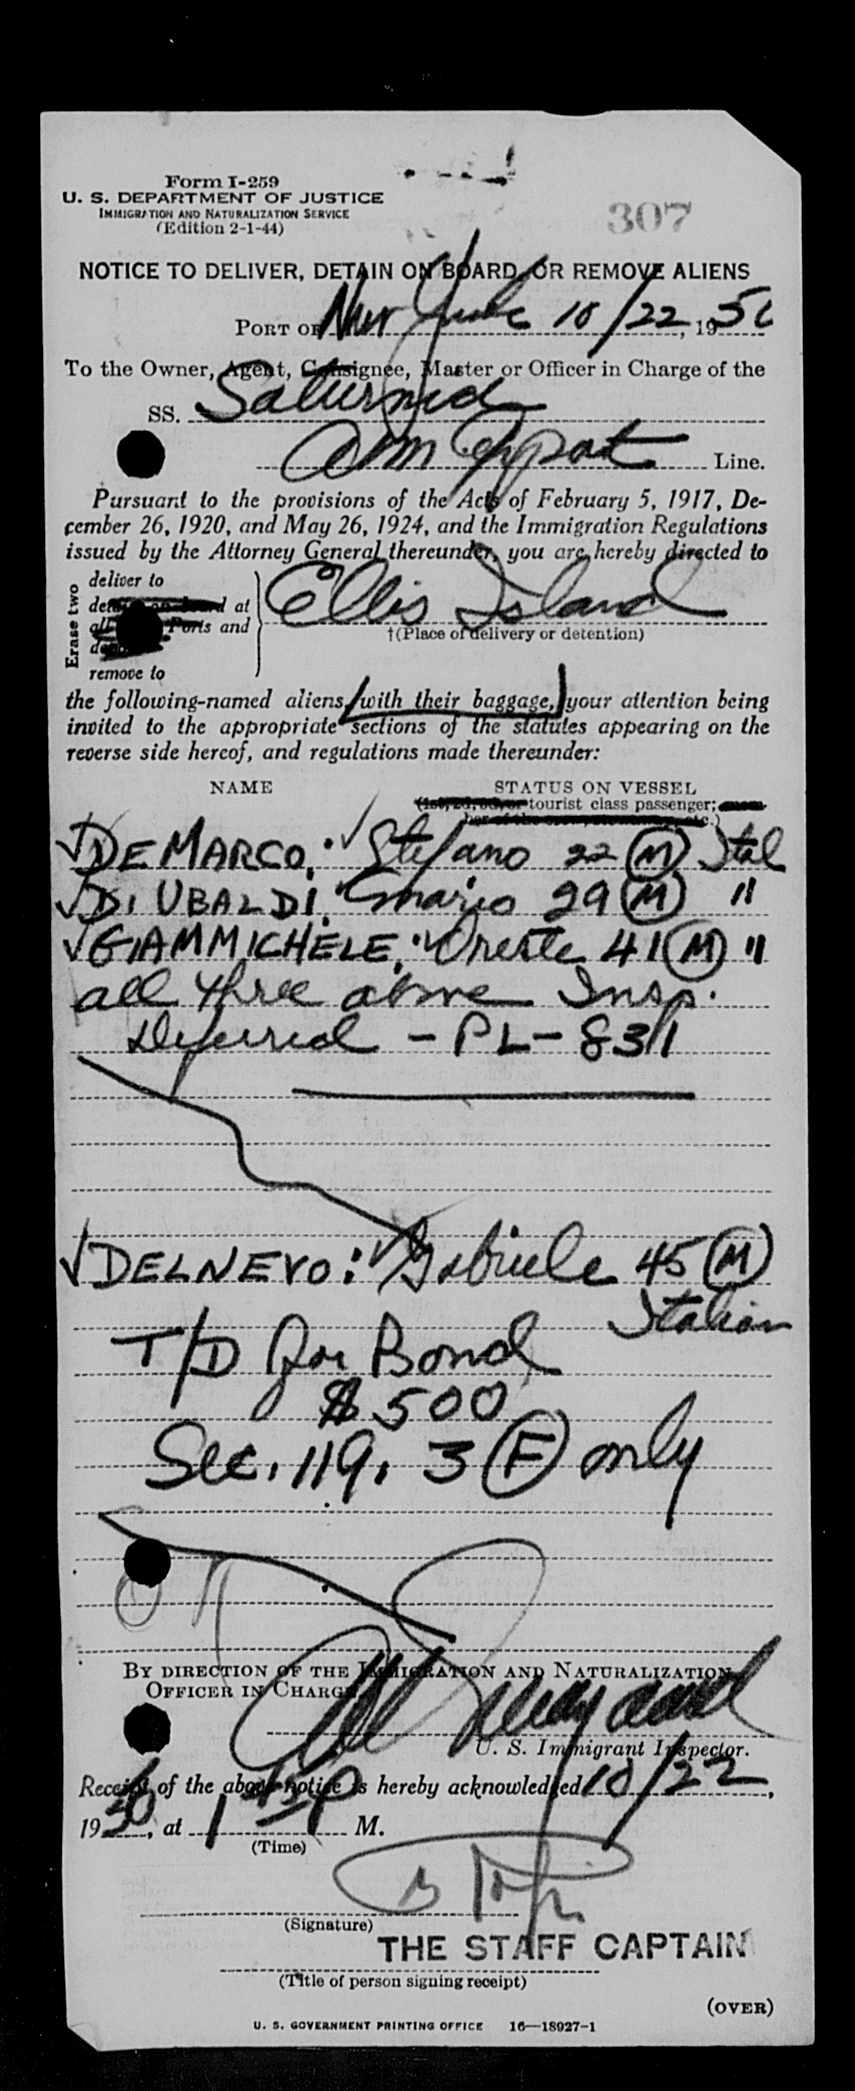 Form I-259
U. S. DEPARTMENT OF JUSTICE
IMMIGRATION AND NATURALIZATION SERVICE
(Edition 2-1-44)
307
NOTICE TO DELIVER, DETAIN ON BOARD, OR REMOVE ALIENS
PORT OF New York 10/22, 1950
To the Owner, Agent, Consignee, Master or Officer in Charge of the
SS. Saturnia
Am Export Line.
Pursuant to the provisions of the Acts of February 5, 1917, De-
cember 26, 1920, and May 26, 1924, and the Immigration Regulations
issued by the Attorney General thereunder, you are hereby directed to
Erase two
deliver to
detain on board at
all Ports and
remove to
Ellis Island
†(Place of delivery or detention)
the following-named aliens, with their baggage, your attention being
invited to the appropriate sections of the statutes appearing on the
reverse side hereof, and regulations made thereunder:
NAME STATUS ON VESSEL
tourist class passenger;
√ DE MARCO, √ Stefano 22 M Ital
√ DI UBALDI, √ Mario 29 M "
√ GIAMMICHELE, √ Oreste 41 M "
all three above Insp.
Deferred - PL - 831
√ DELNEVO: √ Gabriele 45 M
Italian
T/D for Bond
$500
Sec. 119. 3 F only
BY DIRECTION OF THE IMMIGRATION AND NATURALIZATION
OFFICER IN CHARGE
U. S. Immigrant Inspector.
Receipt of the above notice is hereby acknowledged 10/22,
1950, at 1 P M.
(Time)
(Signature)
THE STAFF CAPTAIN
(Title of person signing receipt)
(OVER)
U. S. GOVERNMENT PRINTING OFFICE 16—18927-1